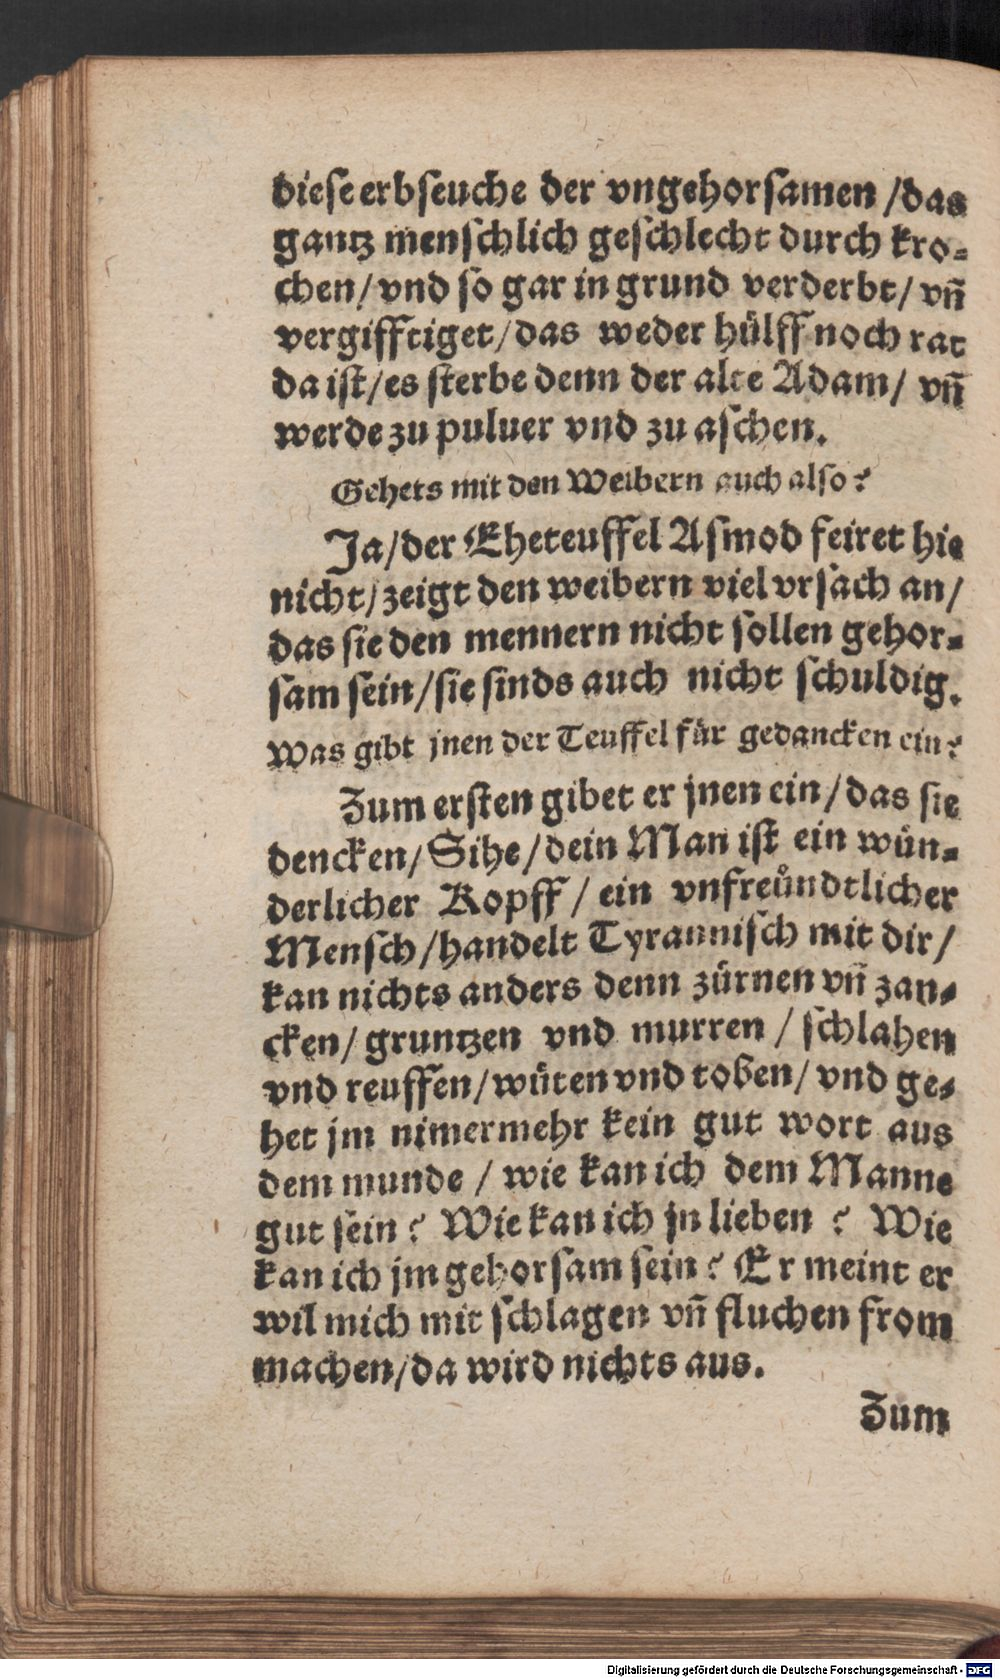 diese erbseuche der vngehorsamen /das
gantz menschlich geschlecht durch kro⸗
chen/ vnd so gar in grund verderbt/ vñ
vergifftiget/ das weder hülff noch rat
da ist/ es sterbe denn der alte Adam/ vñ
werde zu puluer vnd zu aschen.
Gehets mit den Weibern auch also?
Ja/der Eheteuffel Asmod feiret hie
nicht/ zeigt den weibern viel vrsach an/
das sie den mennern nicht sollen gehor⸗
sam sein/sie sinds auch nicht schuldig.
Was gibt jnen der Teuffel für gedancken ein?
Zum ersten gibet er jnen ein/das sie
dencken/ Sihe/dein Man ist ein wün⸗
derlicher Kopff / ein vnfreůndtlicher
Mensch/handelt Tyrannisch mit dir/
kan nichts anders denn zürnen vñ zan⸗
cken/ gruntzen vnd murren / schlahen
vnd reuffen/ wüten vnd toben/ vnd ge⸗
het jm nimermehr kein gut wort aus
dem munde / wie kan ich dem Manne
gut sein? Wie kan ich jn lieben ? Wie
kan ich jm gehorsam sein? Er meint er
wil mich mit schlagen vñ fluchen from
machen/da wird nichts aus.
Zum
Digitalisierung gefördert durch die Deutsche Forschungsgemeinschaft - DFG